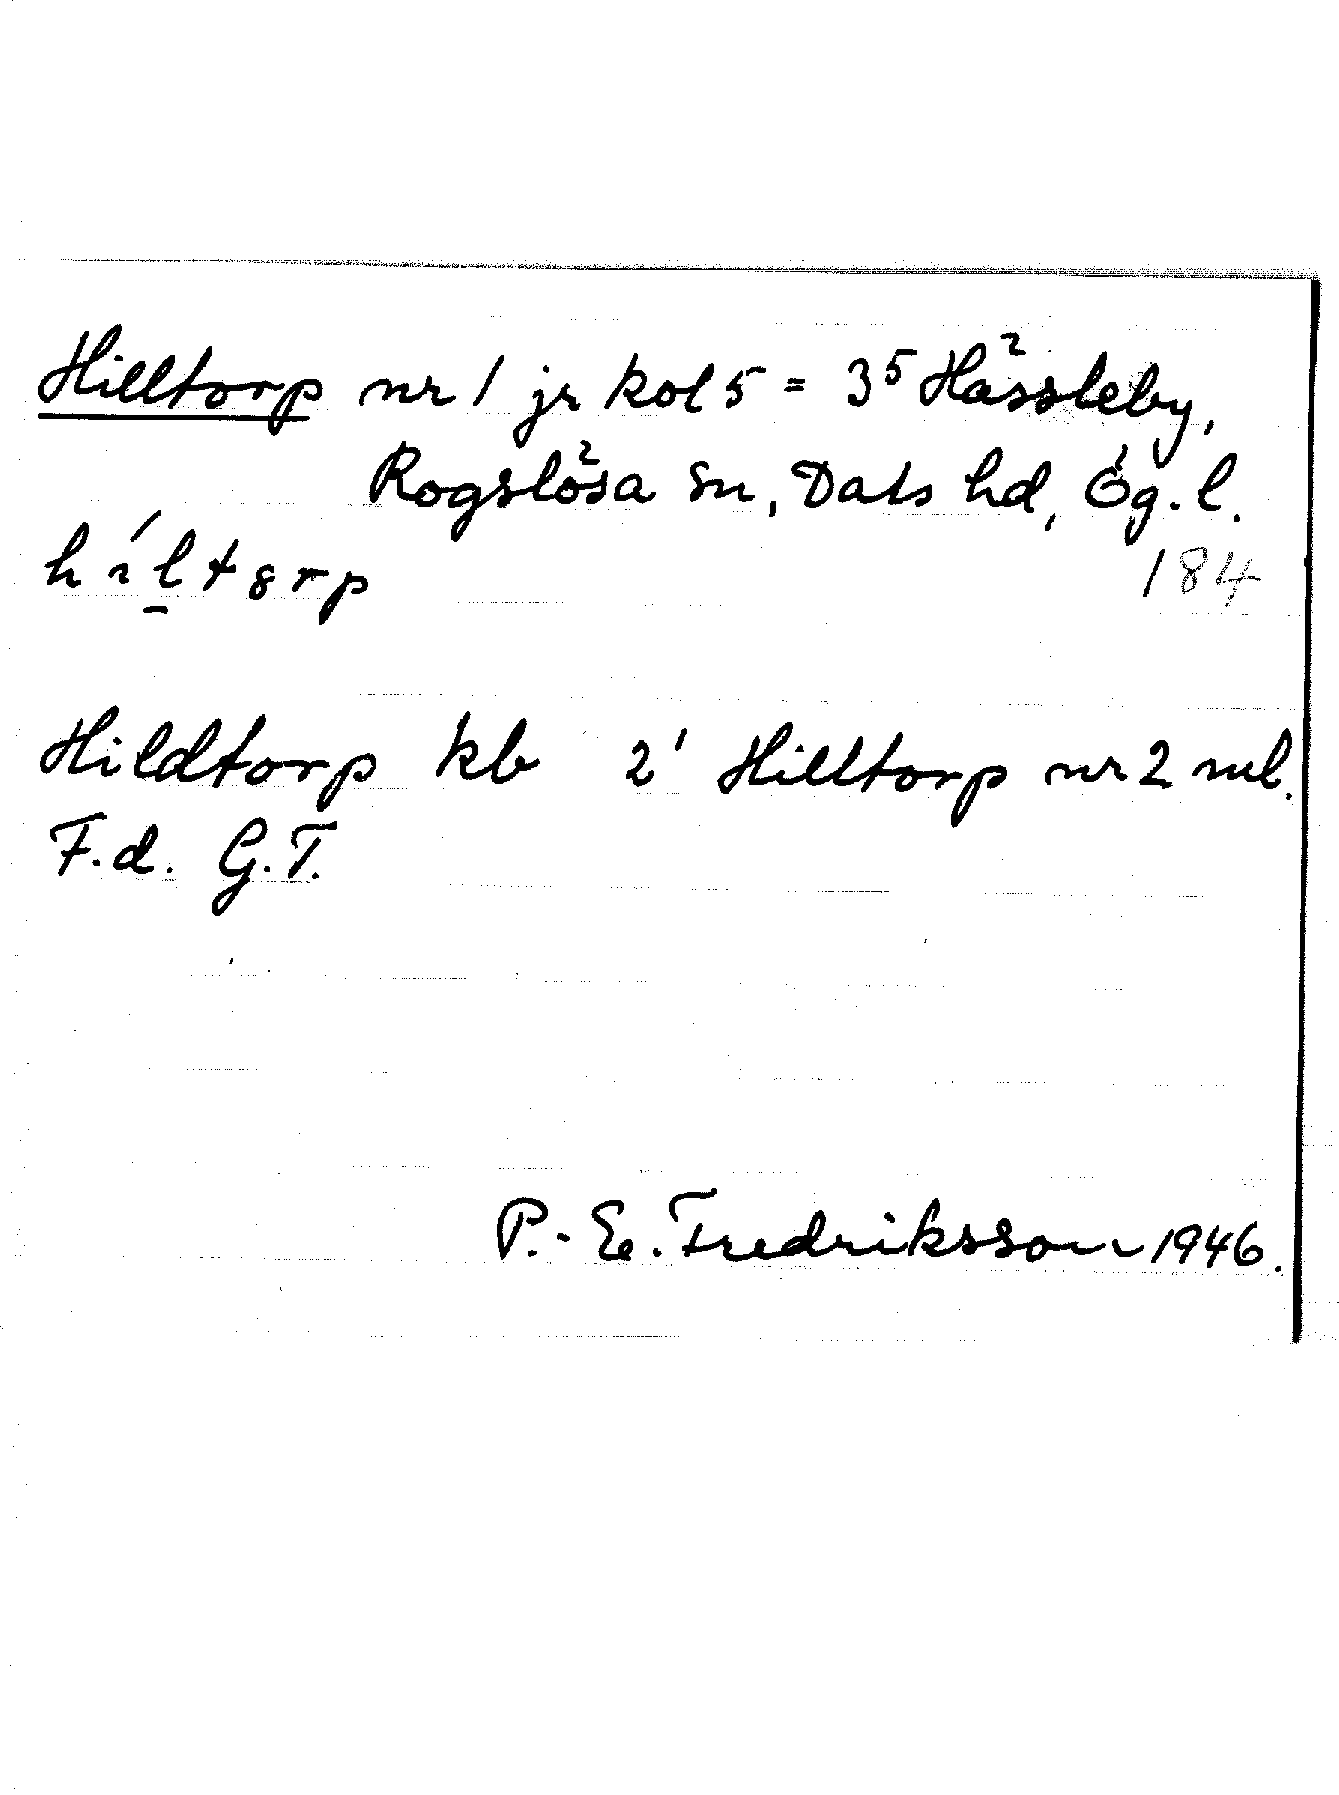 Hilltorp nr 1 jr kol 5 = 3⁵ Hässleby,
Rogslösa sn, Dals hd, Ög. l.
184
Hildtorp kb 2' Hilltorp nr 2 ml.
F.d. G.T.
P.-E. Fredriksson 1946.